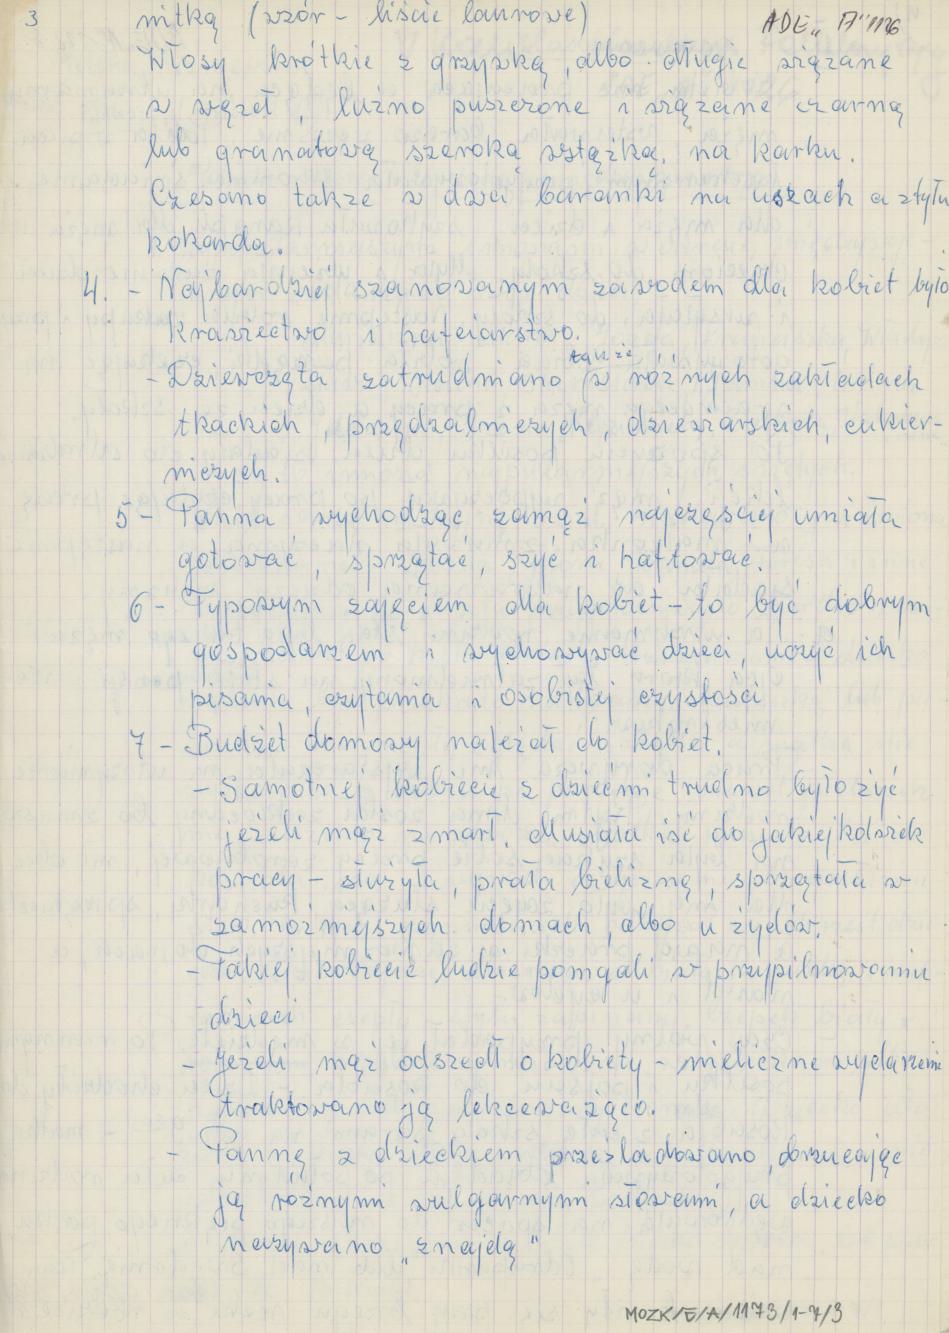 3 nitką (wzór - liście laurowe) ADE„ A"1126
Włosy krótkie z grzywką, albo długie wiązane
w węzeł, luźno puszczone i wiązane czarną
lub granatową szeroką wstążką, na karku.
Czesano także w dwa baranki na uszach a ztyłu
kokarda.
4. - Najbardziej szanowanym zawodem dla kobiet było
krawiectwo i hafciarstwo.
także
- Dziewczęta zatrudniano w różnych zakładach
tkackich, przędzalniczych, dziewiarskich, cukier-
niczych.
5 - Panna wychodząc zamąż najczęściej umiała
gotować, sprzątać, szyć i haftować.
6 - Typowym zajęciem dla kobiet - to być dobrym
gospodarzem i wychowywać dzieci, uczyć ich
pisania, czytania i osobistej czystości
7 - Budżet domowy należał do kobiet.
- Samotnej kobiecie z dziećmi trudno było żyć
jeżeli mąż zmarł. Musiała iść do jakiejkolwiek
pracy - służyła, prała bieliznę, sprzątała w
zamożniejszych domach, albo u żydów.
- Takiej kobiecie ludzie pomgali w przypilnowaniu
dzieci
- Jeżeli mąż odszedł o kobiety - nieliczne wydarzenie
traktowano ją lekceważąco.
- Pannę z dzieckiem prześladowano, dorzucając
ją różnymi wulgarnymi słowami, a dziecko
nazywano „znajdą"
MOZK/E/A/1173/1-7/3